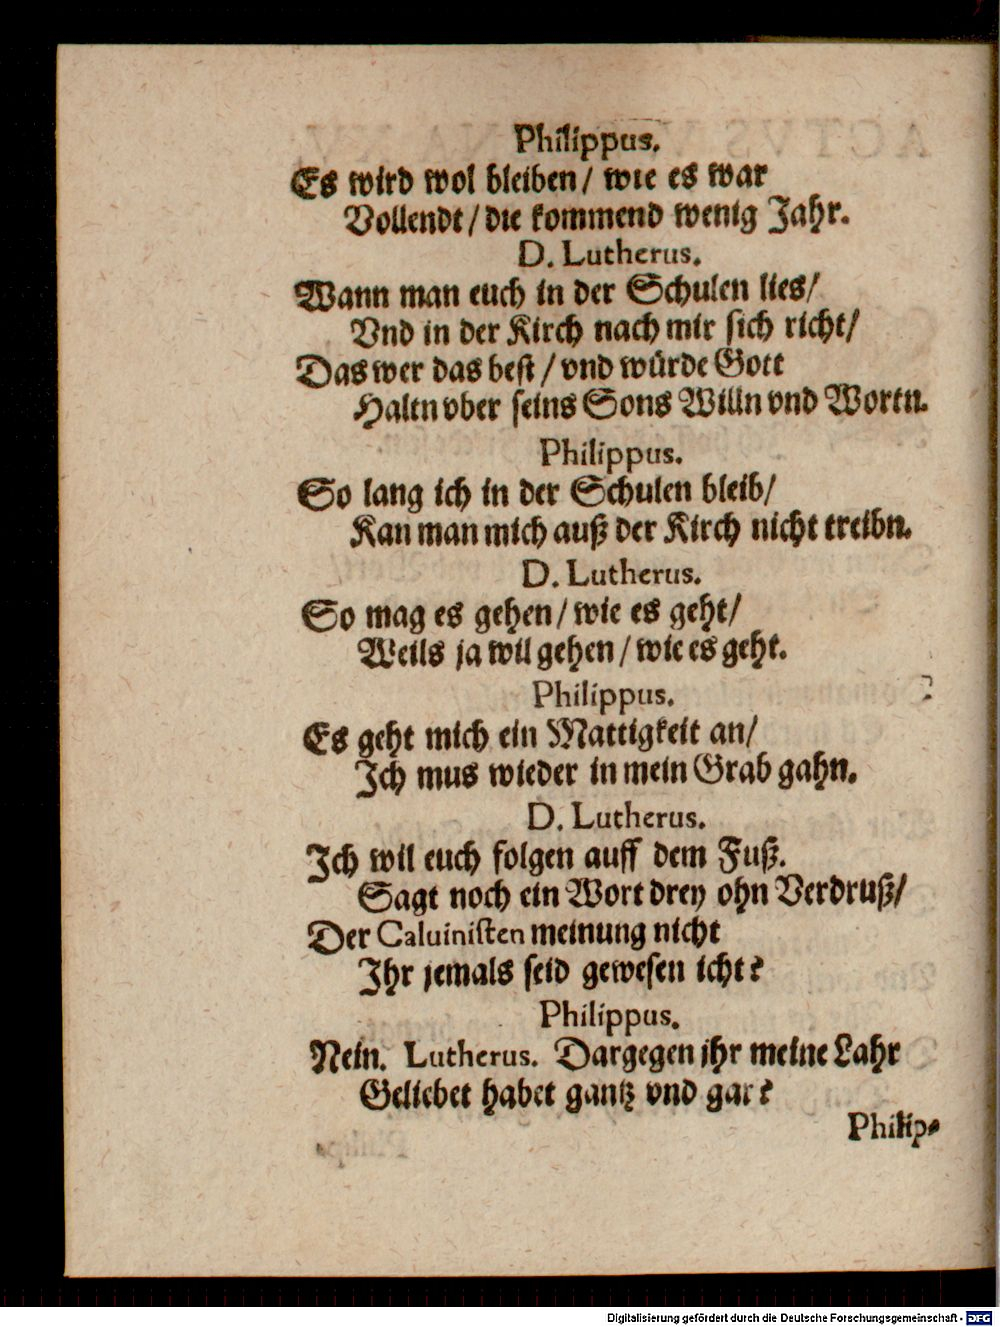 Philippus.
Es wird wol bleiben / wie es war
Vollendt / die kommend wenig Jahr.
D. Lutherus.
Wann man euch in der Schulen lies /
Vnd in der Kirch nach mir sich richt /
Das wer das best / vnd würde Gott
Haltn vber seins Sons Willn vnd Wortn.
Philippus.
So lang ich in der Schulen bleib /
Kan man mich auß der Kirch nicht treibn.
D. Lutherus.
So mag es gehen / wie es geht /
Weils ja wil gehen / wie es geht.
Philippus.
Es geht mich ein Mattigkeit an /
Ich mus wieder in mein Grab gahn.
D. Lutherus.
Ich wil euch folgen auff dem Fuß.
Sagt noch ein Wort drey ohn Verdruß /
Der Caluinisten meinung nicht
Ihr jemals seid gewesen icht?
Philippus.
Nein. Lutherus. Dargegen ihr meine Lahr
Geliebet habet gantz vnd gar?
Philip⸗
Digitalisierung gefördert durch die Deutsche Forschungsgemeinschaft - DFG